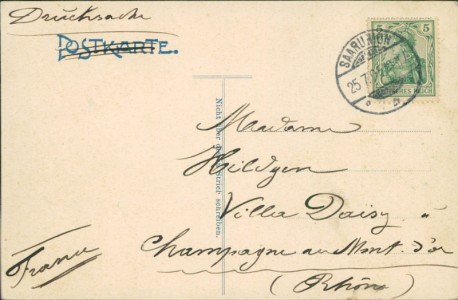 Drucksache
POSTKARTE.
5 5
DEUTSCHES REICH
SAARUNION
25.7.
b
Nicht über den Strich schreiben.
Madame
Hildgen
Villa Daisy à
Champagne au Mont. d'or
(Rhône)
France